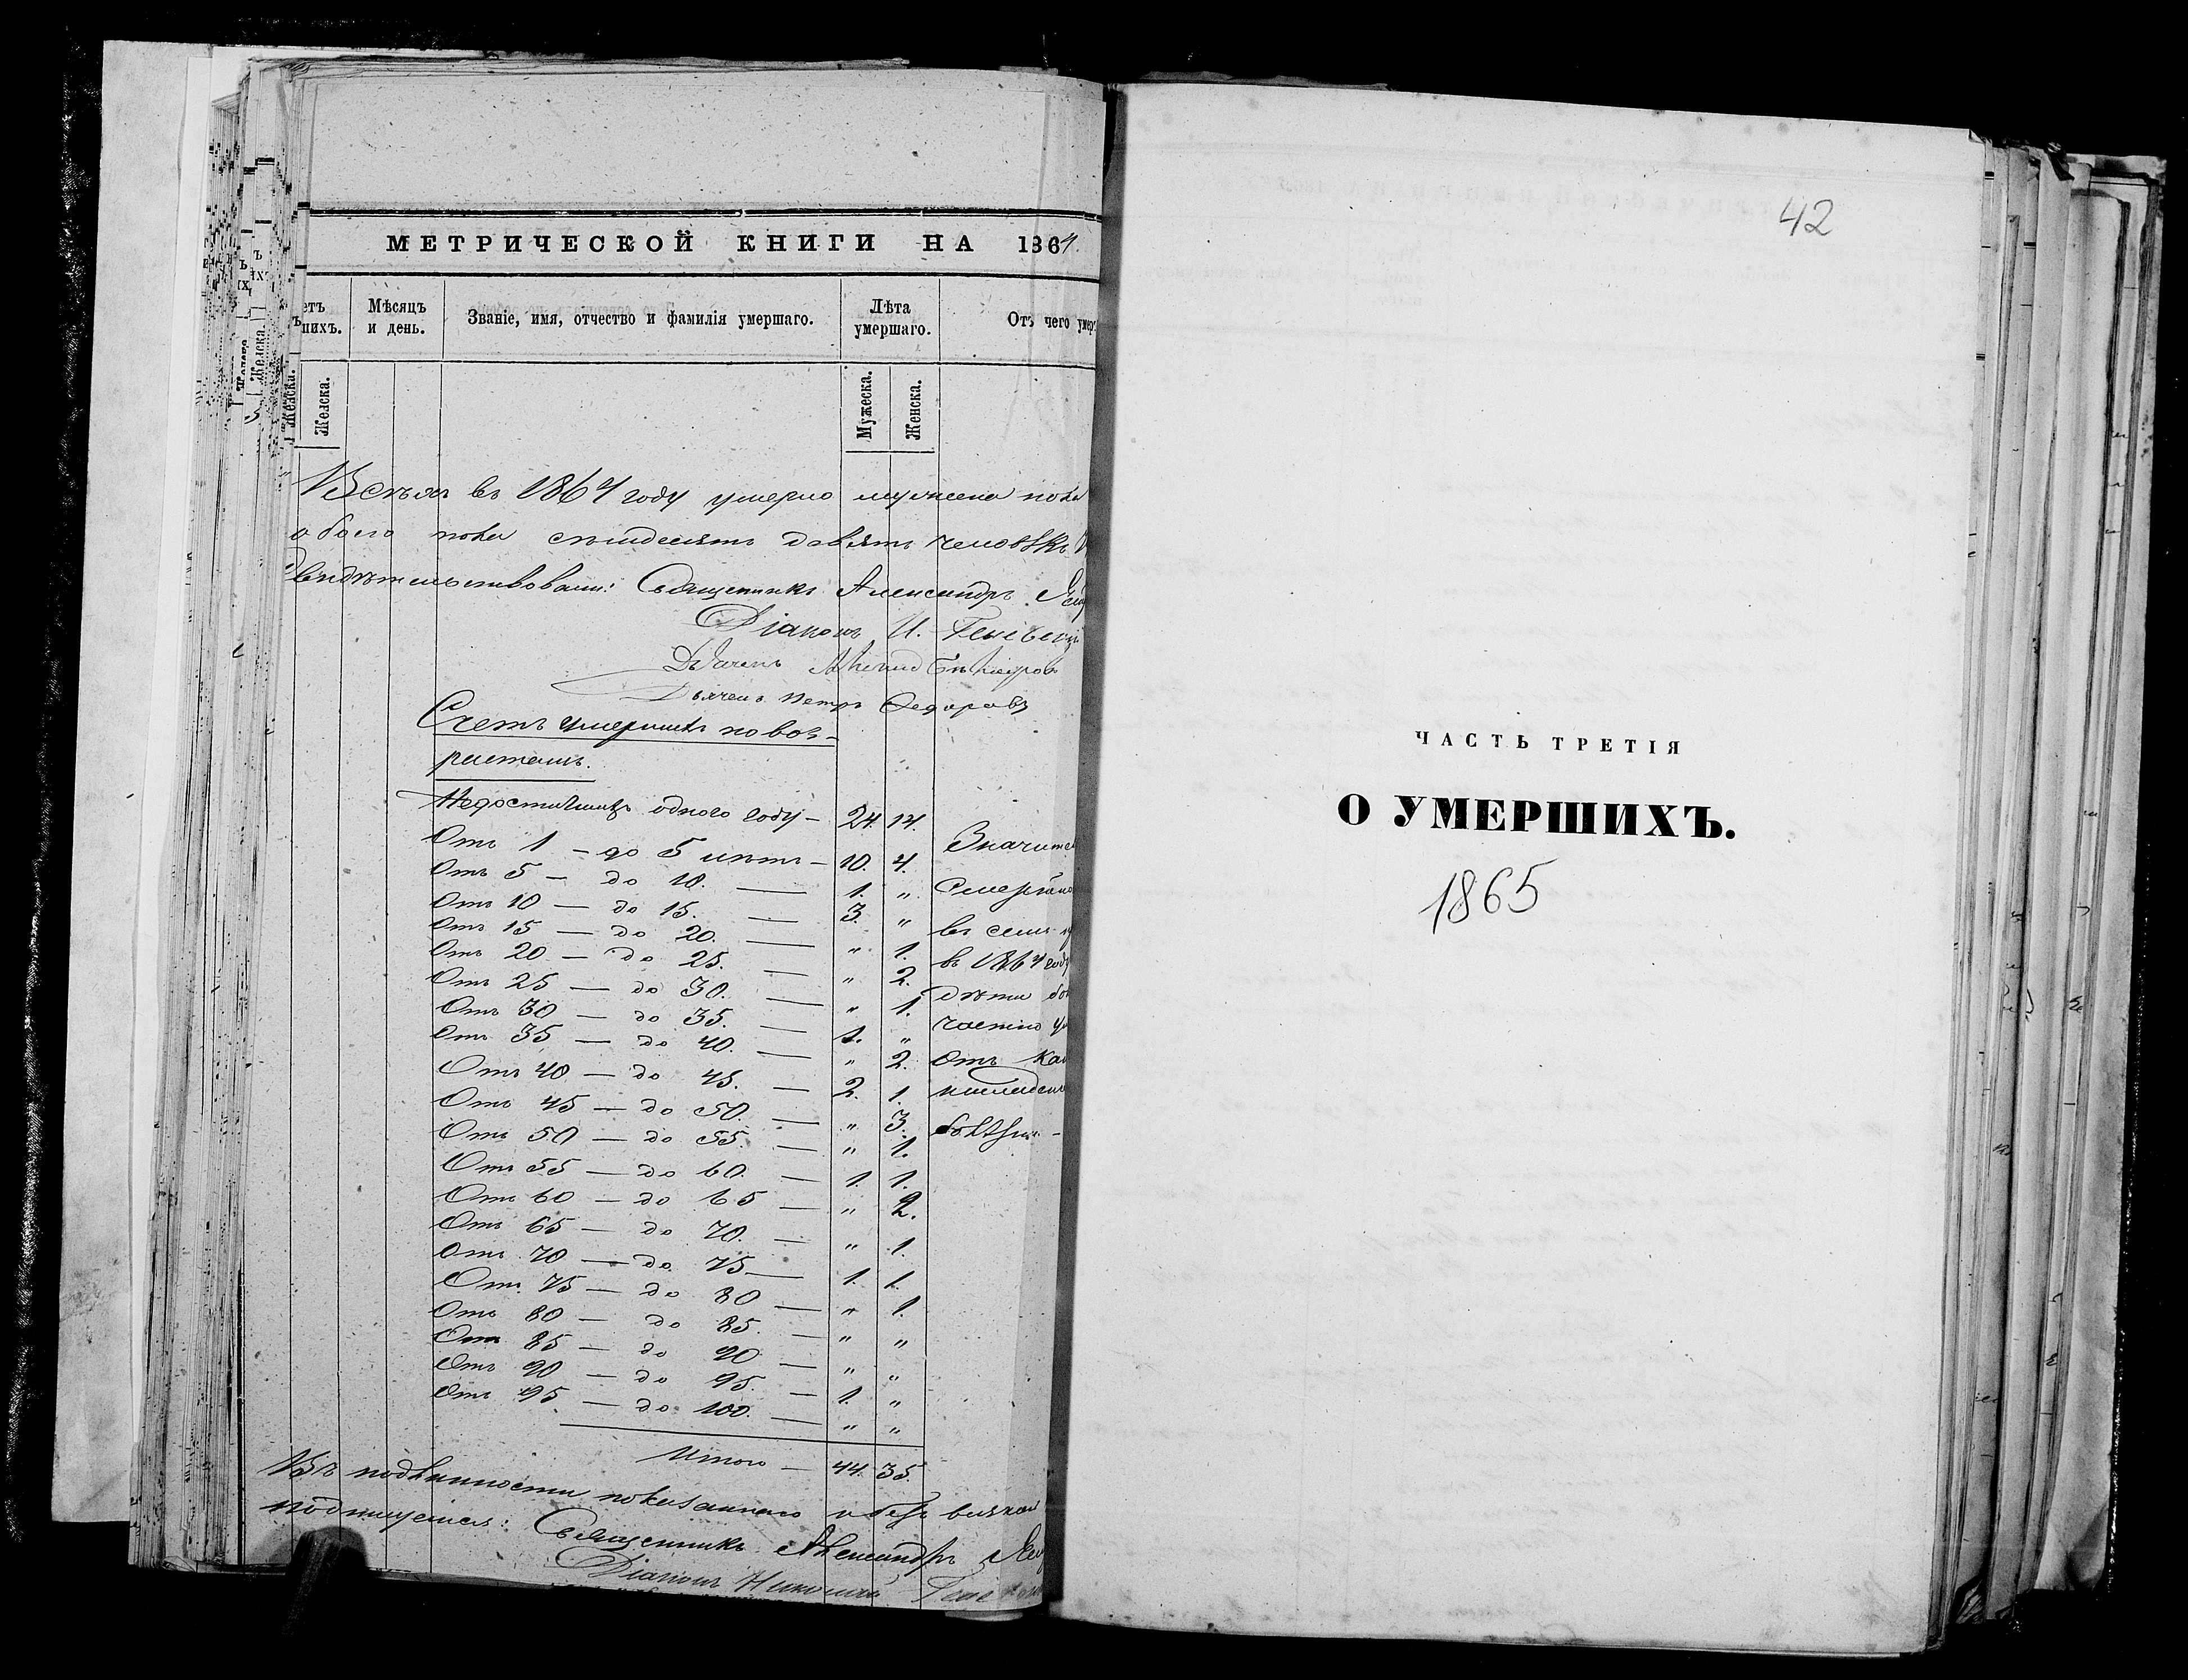 МЕТРИЧЕСКОЙ КНИГИ НА 1864.
етъ шихъ.
Мѣсяцъ и день.
Званіе, имя, отчество и фамилія умершаго.
Лѣта умершаго.
Отъ чего умер
Женска.
Мужеска.
Женска.
Всѣхъ въ 1864 году умерло мужеска пола
обоего пола семьдесятъ девять человѣкъ
Свидѣтельствовали: Священникъ Александръ
Діаконъ И.
Дьячекъ
Дьячекъ Петръ Ѳедоровъ
Счетъ умершихъ по воз-
растамъ.
Недостигшихъ одного году — 24. 14.
Отъ 1 — до 5 лѣтъ — 10. 4.
Отъ 5 — до 10. — 1. „
Отъ 10 — до 15. — 3. „
Отъ 15 — до 20. — „ 1.
Отъ 20 — до 25. — „ 2.
Отъ 25 — до 30. — „ 1.
Отъ 30 — до 35. — 1. „
Отъ 35 — до 40. — „ 2.
Отъ 40 — до 45. — 2. 1.
Отъ 45 — до 50. — „ 3.
Отъ 50 — до 55. — „ 1.
Отъ 55 — до 60. — 1. 1.
Отъ 60 — до 65 — „ 2.
Отъ 65 — до 70. — „ 1.
Отъ 70 — до 75 — 1. 1.
Отъ 75 — до 80 — „ 1.
Отъ 80 — до 85. — „ „
Отъ 85 — до 90 — „ „
Отъ 90 — до 95. — 1. „
Отъ 95 — до 100. — „ „
Итого — 44. 35.
Значите
Смертно
въ семъ
въ 1864 году
дѣти
частію
Отъ
Въ подлинности показаннаго и безъ
подпишемся: Священникъ Александръ
Діаконъ Николай
42
ЧАСТЬ ТРЕТІЯ
О УМЕРШИХЪ.
1865